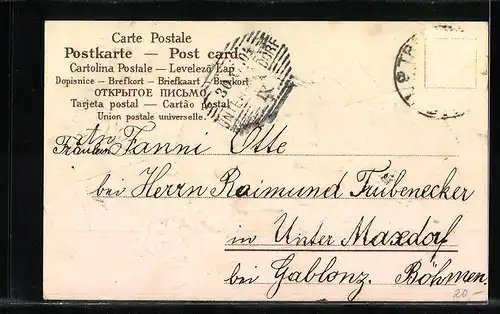 Carte Postale
Postkarte — Post card
Cartolina Postale — Levelező Lap
Dopisnice — Brefkort — Briefkaart — Brevkort
ОТКРЫТОЕ ПИСЬМО
Tarjeta postal — Cartão postal
Union postale universelle.
An
Fräulein Fanni Otte
bei Herrn Raimund Trubenecker
in Unter Maxdorf
bei Gablonz. Böhmen.
20.-